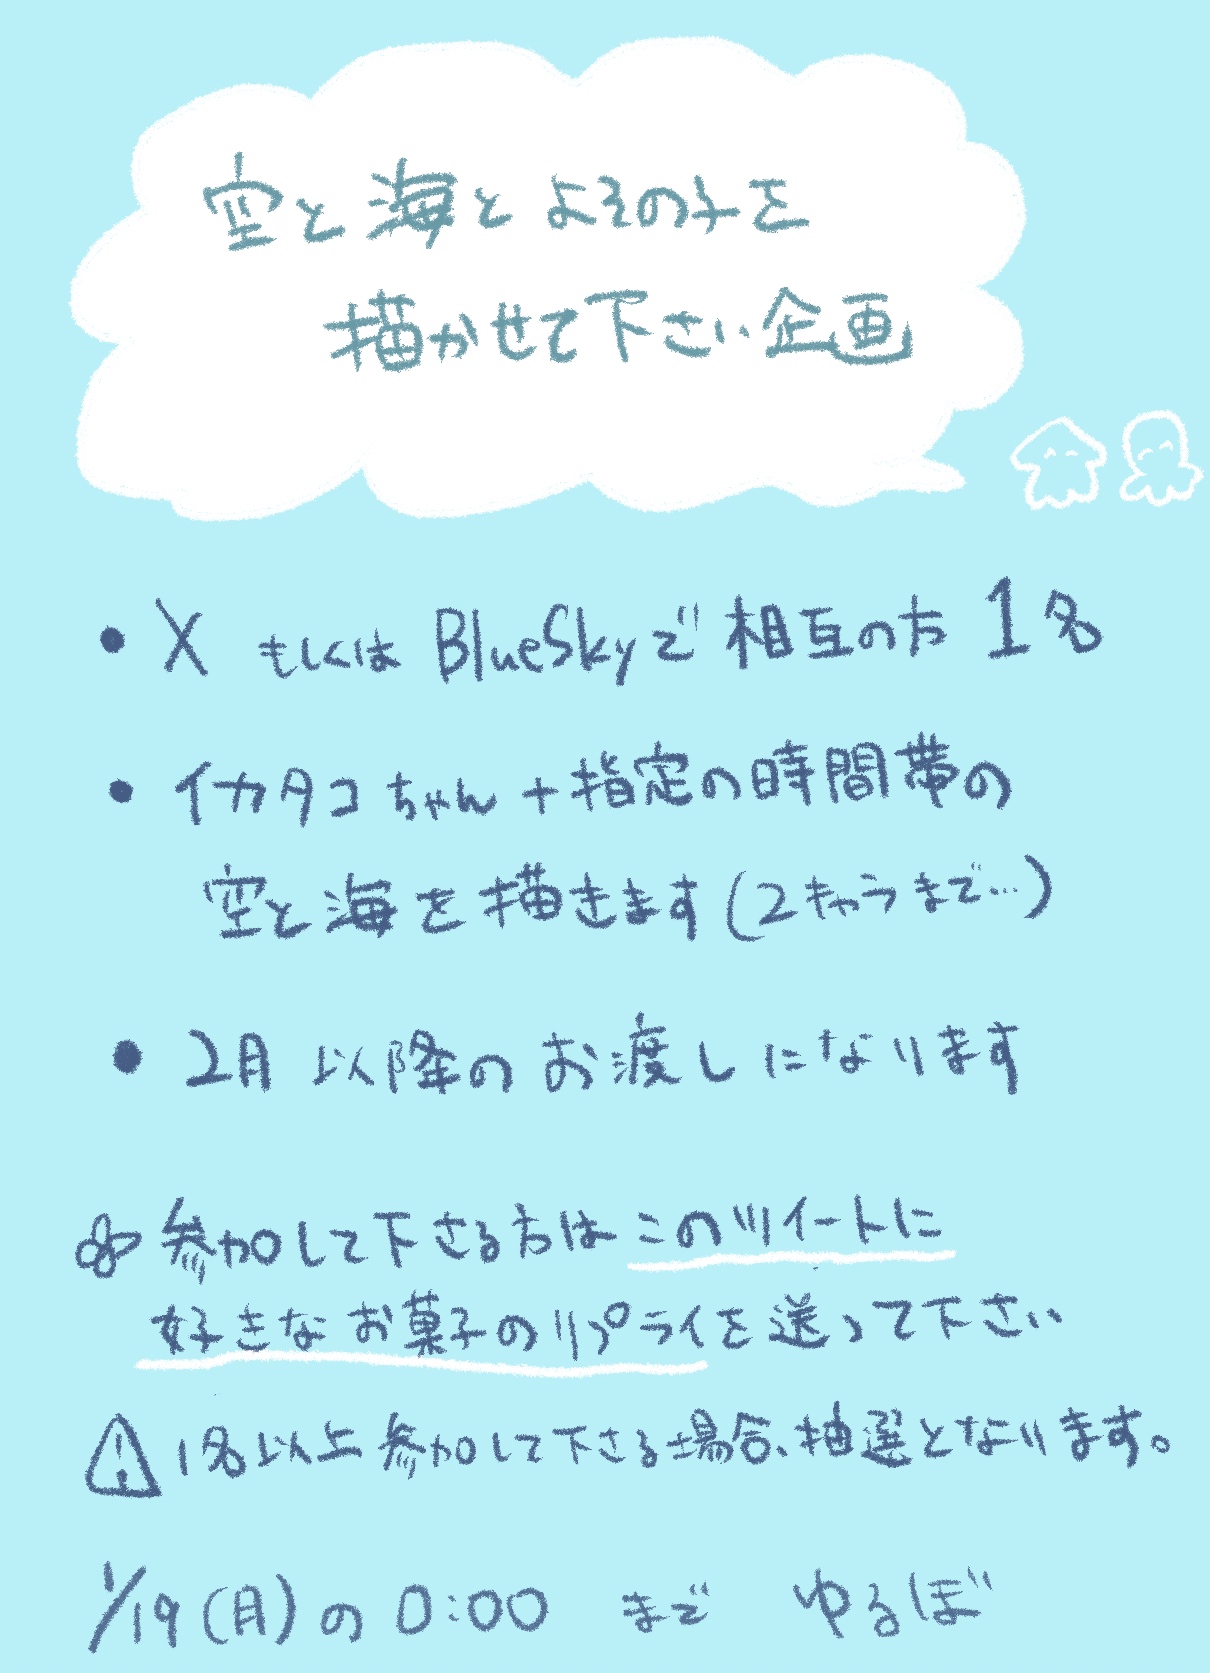 空と海とよその子を
描かせて下さい企画
• X もしくは BlueSkyで相互の方 1名
• イカタコちゃん+指定の時間帯の
空と海を描きます(2キャラまで…)
• 2月以降のお渡しになります
参加して下さる方はこのツイートに
好きなお菓子のリプライを送って下さい
⚠ 1名以上参加して下さる場合、抽選となります。
1/19(月)の0:00 まで ゆるぼ